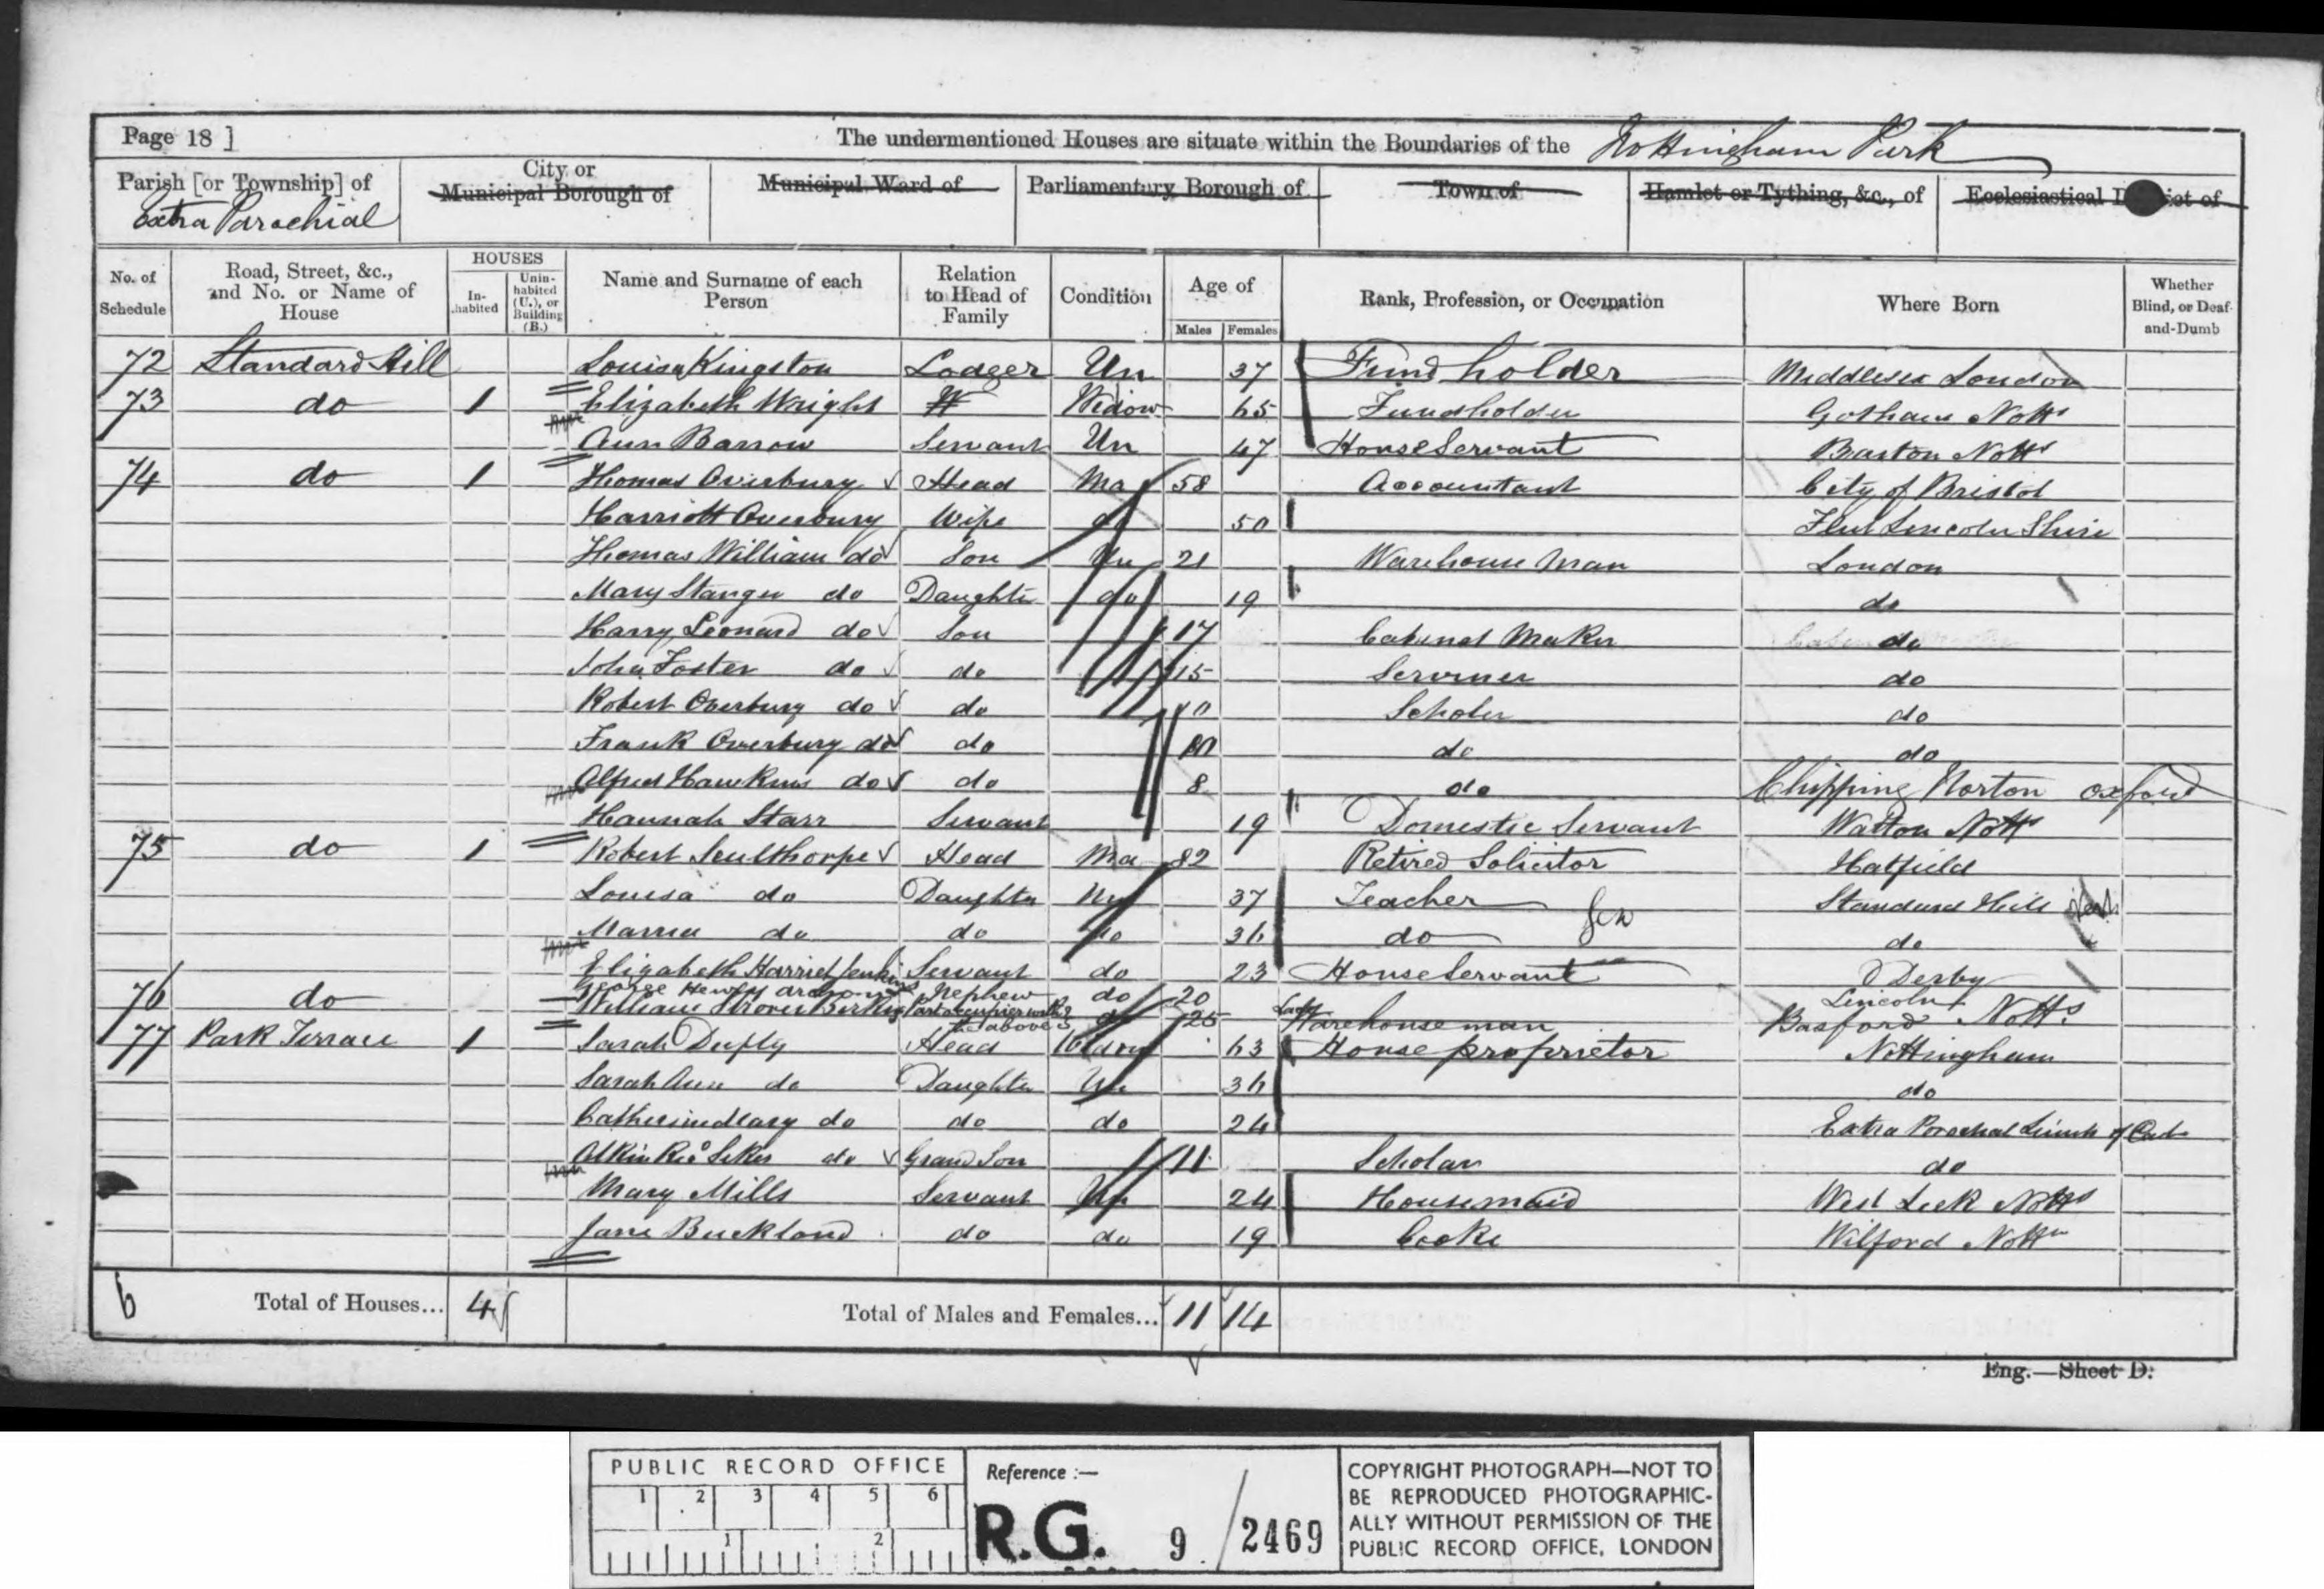 Page 18 ]
The undermentioned Houses are situate within the Boundaries of the Nottingham Park
Parish [or Township] of Extra Parochial
City or Municipal Borough of
Municipal Ward of
Parliamentary Borough of
Town of
Hamlet or Tything, &c., of
Ecclesiastical of
No. of Schedule
Road, Street, &c., and No. or Name of House
HOUSES
In-habited
Unin-habited (U.), or Building (B.)
Name and Surname of each Person
Relation to Head of Family
Condition
Age of
Males
Females
Rank, Profession, or Occupation
Where Born
Whether Blind, or Deaf-and-Dumb
72 Standard Hill Louisa Kingston Lodger Un 37 Fund holder Middlesex London
73 do 1 Elizabeth Wright W Widow 65 Fundholder Gotham Notts
Ann Barrow Servant Un 47 House Servant Barton Notts
74 do 1 Thomas Overbury Head Ma 58 Accountant City of Bristol
Harriott Overbury Wife do 50 Lincoln Shire
Thomas William do Son Un 21 Warehouse Man London
Mary Stanger do Daughter do 19 do
Harry Leonard do Son 17 Cabinet Maker do
John Foster do do 15 do
Robert Overbury do do Scholer do
Frank Overbury do do do do
Alfred Hawkins do do 8 do Chipping Norton Oxford
Hannah Starr Servant 19 Domestic Servant Watton Notts
75 do 1 Robert Sculthorpe Head Ma 82 Retired Solicitor Hatfield
Louisa do Daughter Un 37 Teacher Standard Hill
do do 36 do do
Elizabeth Harriet Jenkins Servant do 23 House Servant Derby
George Henry Nephew do 20 Lincoln
76 do William Part occupier with the above do 25 Lace Warehouseman Basford Notts
77 Park Terrace 1 Sarah Head Widow 63 House proprietor Nottingham
Sarah Ann do Daughter Un 36 do
do do do 24 Extra Parochial
do Grand Son 11 Scholar do
Mary Mills Servant Un 24 Housemaid West Leek Notts
Jane Buckland do do 19 Cooke Wilford Notts
6 Total of Houses... 4
Total of Males and Females... 11 14
Eng.—Sheet D.
PUBLIC RECORD OFFICE
1 2 3 4 5 6
1 2
Reference :—
R.G. 9 / 2469
COPYRIGHT PHOTOGRAPH—NOT TO
BE REPRODUCED PHOTOGRAPHIC-
ALLY WITHOUT PERMISSION OF THE
PUBLIC RECORD OFFICE, LONDON